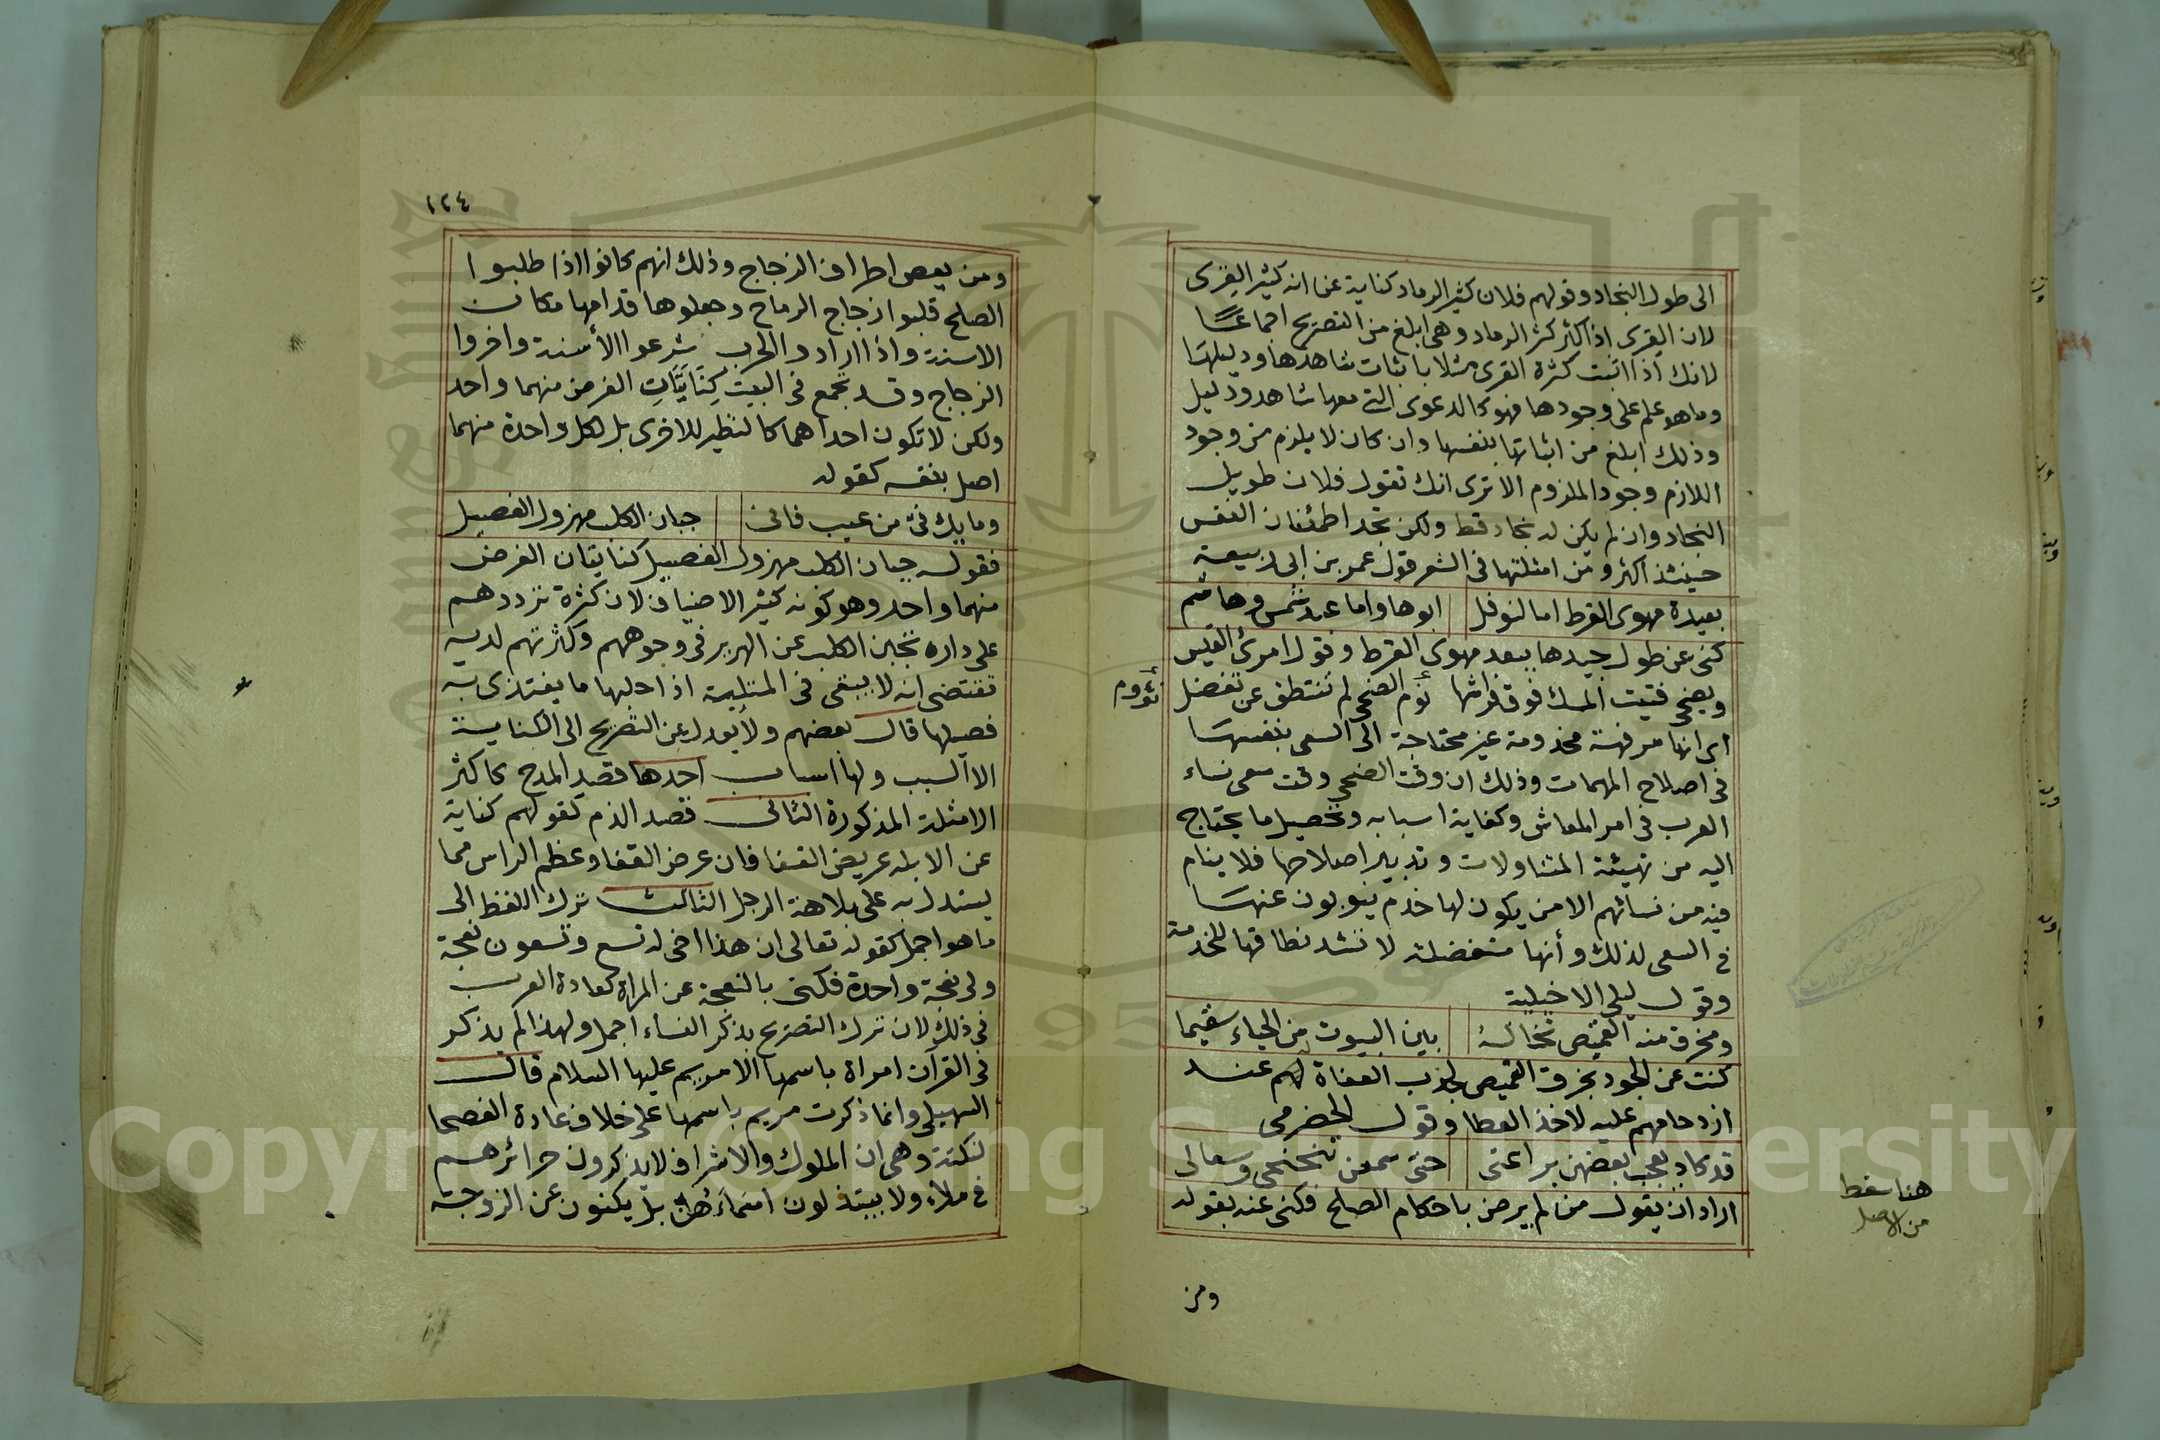 الى طول النجاد وقولهم فلان كثير الرماد كناية عن انه كثير القرى
لان القرى اذا كثر كثر الرماد وهي ابلغ من التصريح اجماعًا
لانك اذا اثبت كثرة القرى مثلا باثبات شاهدها ودليلها
وما هو علم على وجودها فهو كالدعوى التي معها شاهد ودليل
وذلك ابلغ من اثباتها بنفسها وان كان لا يلزم من وجود
اللازم وجود الملزوم الا ترى انك تقول فلان طويل
النجاد وان لم يكن له نجاد قط ولكن تجد اطمئنان النفس
حينئذ اكثر ومن امثلتها في الشعر قول عمر بن ابي ربيعة
بعيدة مهوى القرط اما لنوفل ابوها واما عبد شمس وهاشم
كنى عن طول جيدها ببعد مهوى القرط وقول امرئ القيس
ويضحي فتيت المسك فوق فراشها نؤم الضحى لم تنتطق عن تفضل
نؤوم
اي انها مرفهة مخدومة غير محتاجة الى السعي بنفسها
في اصلاح المهمات وذلك ان وقت الضحى وقت سعي نساء
العرب في امر المعاش وكفاية اسبابه وتحصيل ما يحتاج
اليه من تهيئة المتناولات وتدبير اصلاحها فلا ينام
فيه من نسائهم الا من يكون لها خدم ينوبون عنها
في السعي لذلك وأنها متفضلة لا تشد نطاقها للخدمة
وقول ليلى الاخيلية
ومخرق منه القميص تخاله بين البيوت من الحياء سقيما
كنت عن الجود بخرق القميص لجذب العفاة لهم عند
ازدحامهم عليه لاخذ العطا وقول الحضرمي
قد كاد يعجب بعضهن براعتي حتى سمعن تنحنحي وسعالي
هنا سقط
من الاصل
اراد ان يقول من لم يرض باحكام الصلح فكنى عنه بقوله
ومن
١٢٤
ومن يعص اطراف الزجاج وذلك انهم كانوا اذا طلبوا
الصلح قلبوا زجاج الرماح وجعلوها قدامها مكان
الاسنة واذا ارادوا الحرب شرعوا الأسنة واخروا
الزجاج وقد تجمع في البيت كِنَايَتَانِ الغرض منهما واحد
ولكن لا تكون احداهما كالنظير للاخرى بل لكل واحدة منهما
اصل بنفسه كقوله
وما يك فيّ من عيب فاني جبان الكلب مهزول الفصيل
فقوله جبان الكلب مهزول الفصيل كنايتان الغرض
منهما واحد وهو كونه كثير الاضياف لان كثرة ترددهم
على داره تجبن الكلب عن الهرير في وجوههم وكثرتهم لديه
تقتضي انه لا يبقى في المتلية اذا حلبها ما يغتذى به
فصيلها قال بعضهم ولا يعدل عن التصريح الى الكناية
الا لسبب ولها اسباب احدها قصد المدح كاكثر
الامثلة المذكورة الثاني قصد الذم كقولهم كناية
عن الابله عريض القفا فان عرض القفا وعظم الراس مما
يستدل به على بلاهة الرجل الثالث ترك اللفظ الى
ما هو اجمل كقوله تعالى ان هذا اخي له تسع وتسعون نعجة
ولي نعجة واحدة فكنى بالنعجة عن المراة كعادة العرب
في ذلك لان ترك التصريح بذكر النساء اجمل ولهذا لم يذكر
في القرآن امراة باسمها الا مريم عليها السلام قال
السهيلي وانما ذكرت مريم باسمها على خلاف عادة الفصحا
لنكتة وهي ان الملوك والاشراف لا يذكرون حرائرهم
في ملاء ولا يبتذلون اسماءهن بل يكنون عن الزوجة
Copyright © King Saud University